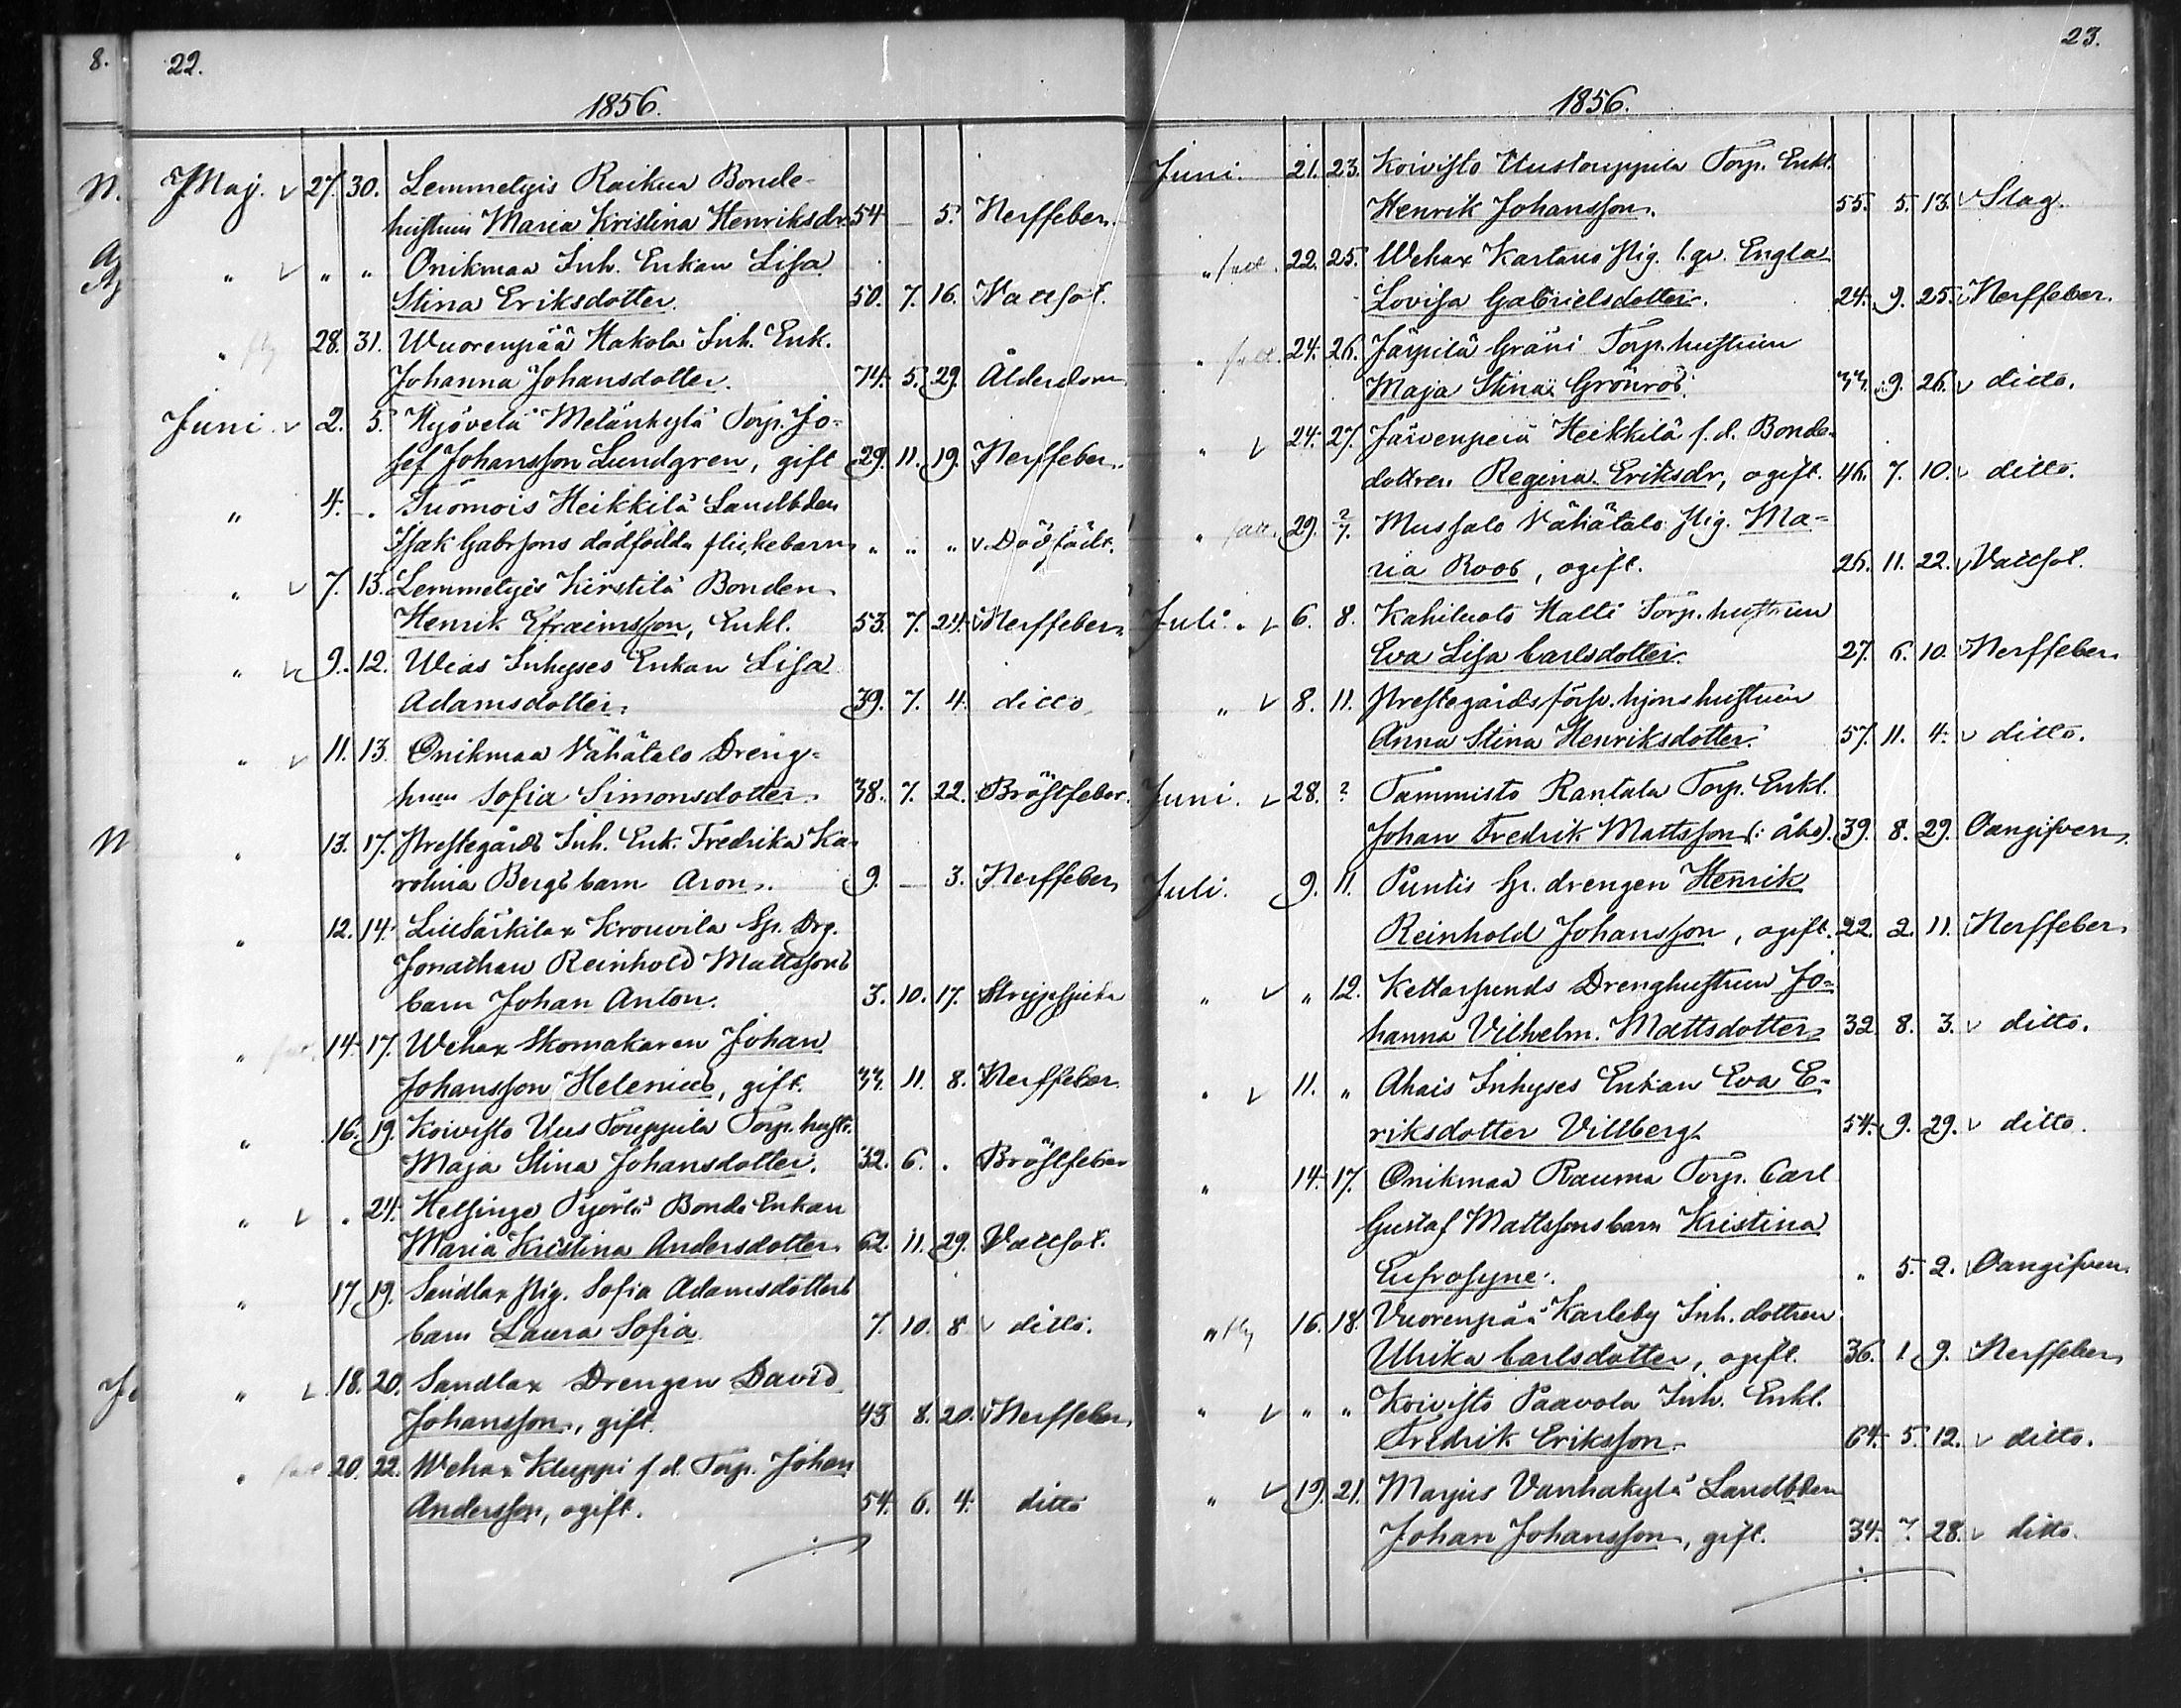 8.
22.
1856.
N.
Maj. v 27. 30. Lemmetyis Raikua Bonde-
hustrun Maria Kristina Henriksdr. 54 — 5. Nerffeber.
" v " " Onikmaa Inh. Enkan Lisa
Stina Eriksdotter. 50. 7. 16. Vattsot.
" 28. 31. Wuorenpää Hakola Inh. Enk.
Johanna Johansdotter. 74. 5. 29. Ålderdom
Juni. v 2. 5. Hyövelä Melänkylä Torp. Jo-
sef Johansson Lundgren, gift 29. 11. 19. Nerffeber.
" 4. - . Tuomois Heikkilä Landbden
Isak Gabrsons dödfödda flickebarn " " " v Dödfödt.
" v 7. 13. Lemmetyis Kirstilä Bonden
Henrik Efraimsson, Enkl. 53. 7. 24. v Nerffeber
" v 9. 12. Wias Inhyses Enkan Lisa
Adamsdotter. 39. 7. 4. ditto
" v 11. 13. Onikmaa Vähätalo Dreng-
hrun Sofia Simonsdotter. 38. 7. 22. Bröstfeber.
N
" 13. 17. Prestegårds Inh. Enk. Fredrika Ka-
rolina Bergs barn Aron. 9. — 3. Nerffeber
" 12. 14. LillSärkilax Krouvila Sp. Drg.
Jonathan Reinhold Mattssons
barn Johan Anton. 3. 10. 17. Strypsjuka
" 14. 17. Wehax Skomakaren Johan
Johansson Helenius, gift. 33. 11. 8. Nerffeber.
" 16. 19. Koivisto Uus Touppila Torp. hustr.
Maja Stina Johansdotter. 32. 6. . Bröstfeber
" v " 24. Helsinge Pyörlä Bonde Enkan
Maria Kristina Andersdotter. 62. 11. 29. Vattsot.
" 17 19. Sandlax Pig. Sofia Adamsdotters
barn Laura Sofia 7. 10. 8 v ditto.
" v. 18. 20. Sandlax Drengen David
Johansson, gift. 43 8. 20. v Nerffeber.
" 20. 22. Wehax Kluppi f. d. Torp. Johan
Andersson, ogift. 54. 6. 4. ditto
23.
1856.
Juni. 21. 23. Koivisto Uustouppila Torp. Enkl.
Henrik Johansson. 55. 5. 13. v Slag.
" 22. 25. Wehax Kartano Pig. Engla
Lovisa Gabrielsdotter. 24. 9. 25. v Nerffeber.
" 24. 26. Järpilä Gräni Torp. hustrun
Maja Stina Grönros. 33. 9. 26. v ditto.
" v 24. 27. Järvenpää Heikkilä f. d. Bonde-
dottren Regina Eriksdr, ogift. 46. 7. 10. v ditto.
" 29. 2/7. Mussalo Vähätalo Pig. Ma-
ria Roos, ogift. 26. 11. 22. v Vattsot.
Juli. v 6. 8. Kahiluoto Halli Torp. hustrun
Eva Lisa Carlsdotter. 27. 6. 10. v Nerffeber
" v 8. 11. Prestegårds hjonshustrun
Anna Stina Henriksdotter. 57. 11. 4. v ditto.
Juni. v 28. ? Tammisto Rantala Torp. Enkl.
Johan Fredrik Mattsson (: åbo). 39. 8. 29. Oangifven.
Juli. 9. 11. Puntis Sp. drengen Henrik
Reinhold Johansson, ogift. 22. 2. 11. v Nerffeber
" v " 12. Kettarsunds Drenghustrun Jo-
hanna Vilhelm. Mattsdotter 32. 8. 3. v ditto.
" v 11. " Ahais Inhyses Enkan Eva E-
riksdotter Villberg. 54. 9. 29. v ditto.
" 14. 17. Onikmaa Rauma Torp. Carl
Gustaf Mattssons barn Kristina
Eufrosyne. " 5. 2. v Oangifven.
" 16. 18. Vuorenpää Karleby Inh. dottren
Ulrika Carlsdotter, ogift. 36. 1. 9. Nerffeber
" v " " Koivisto Paavola Inh. Enkl.
Fredrik Eriksson. 64. 5. 12. v ditto.
" v 19. 21. Marjus Vanhakylä Landbden
Johan Johansson, gift. 34. 7. 28. v ditto.